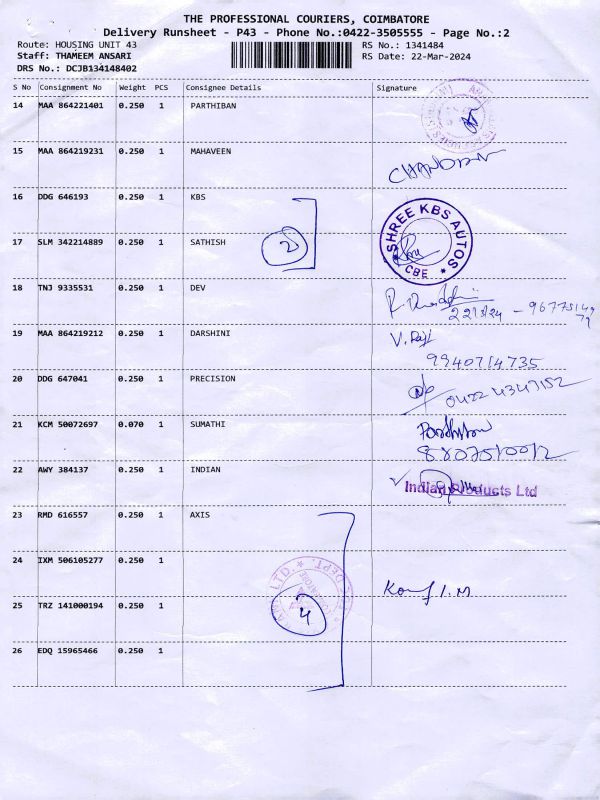 THE PROFESSIONAL COURIERS, COIMBATORE
Delivery Runsheet - P43 - Phone No.:0422-3505555 - Page No.:2
Route: HOUSING UNIT 43
RS No.: 1341484
Staff: THAMEEM ANSARI
RS Date: 22-Mar-2024
DRS No.: DCJB134148402
S No Consignment No Weight PCS Consignee Details Signature
14 MAA 864221401 0.250 1 PARTHIBAN
15 MAA 864219231 0.250 1 MAHAVEEN
CHANDRAN
16 DDG 646193 0.250 1 KBS
SHREE KBS AUTOS
CBE
17 SLM 342214889 0.250 1 SATHISH
2
18 TNJ 9335531 0.250 1 DEV
22/3/24
19 MAA 864219212 0.250 1 DARSHINI
V. Raji
9940714735
20 DDG 647041 0.250 1 PRECISION
0422 4347152
21 KCM 50072697 0.070 1 SUMATHI
22 AWY 384137 0.250 1 INDIAN
Indian Products Ltd
23 RMD 616557 0.250 1 AXIS
24 IXM 506105277 0.250 1
25 TRZ 141000194 0.250 1
4
26 EDQ 15965466 0.250 1